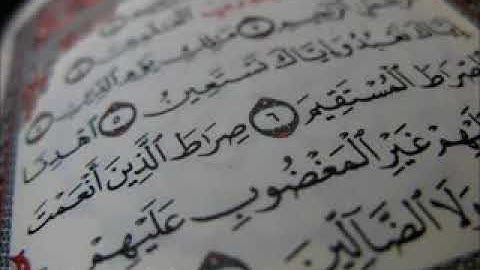 الرَّحِيمِ ٣ مَلِكِ يَوْمِ الدِّينِ ٤
إِيَّاكَ نَعْبُدُ وَإِيَّاكَ نَسْتَعِينُ ٥ ٱهْدِنَا
ٱلصِّرَاطَ ٱلْمُسْتَقِيمَ ٦ صِرَاطَ ٱلَّذِينَ أَنْعَمْتَ
عَلَيْهِمْ غَيْرِ ٱلْمَغْضُوبِ عَلَيْهِمْ
وَلَا ٱلضَّآلِّينَ